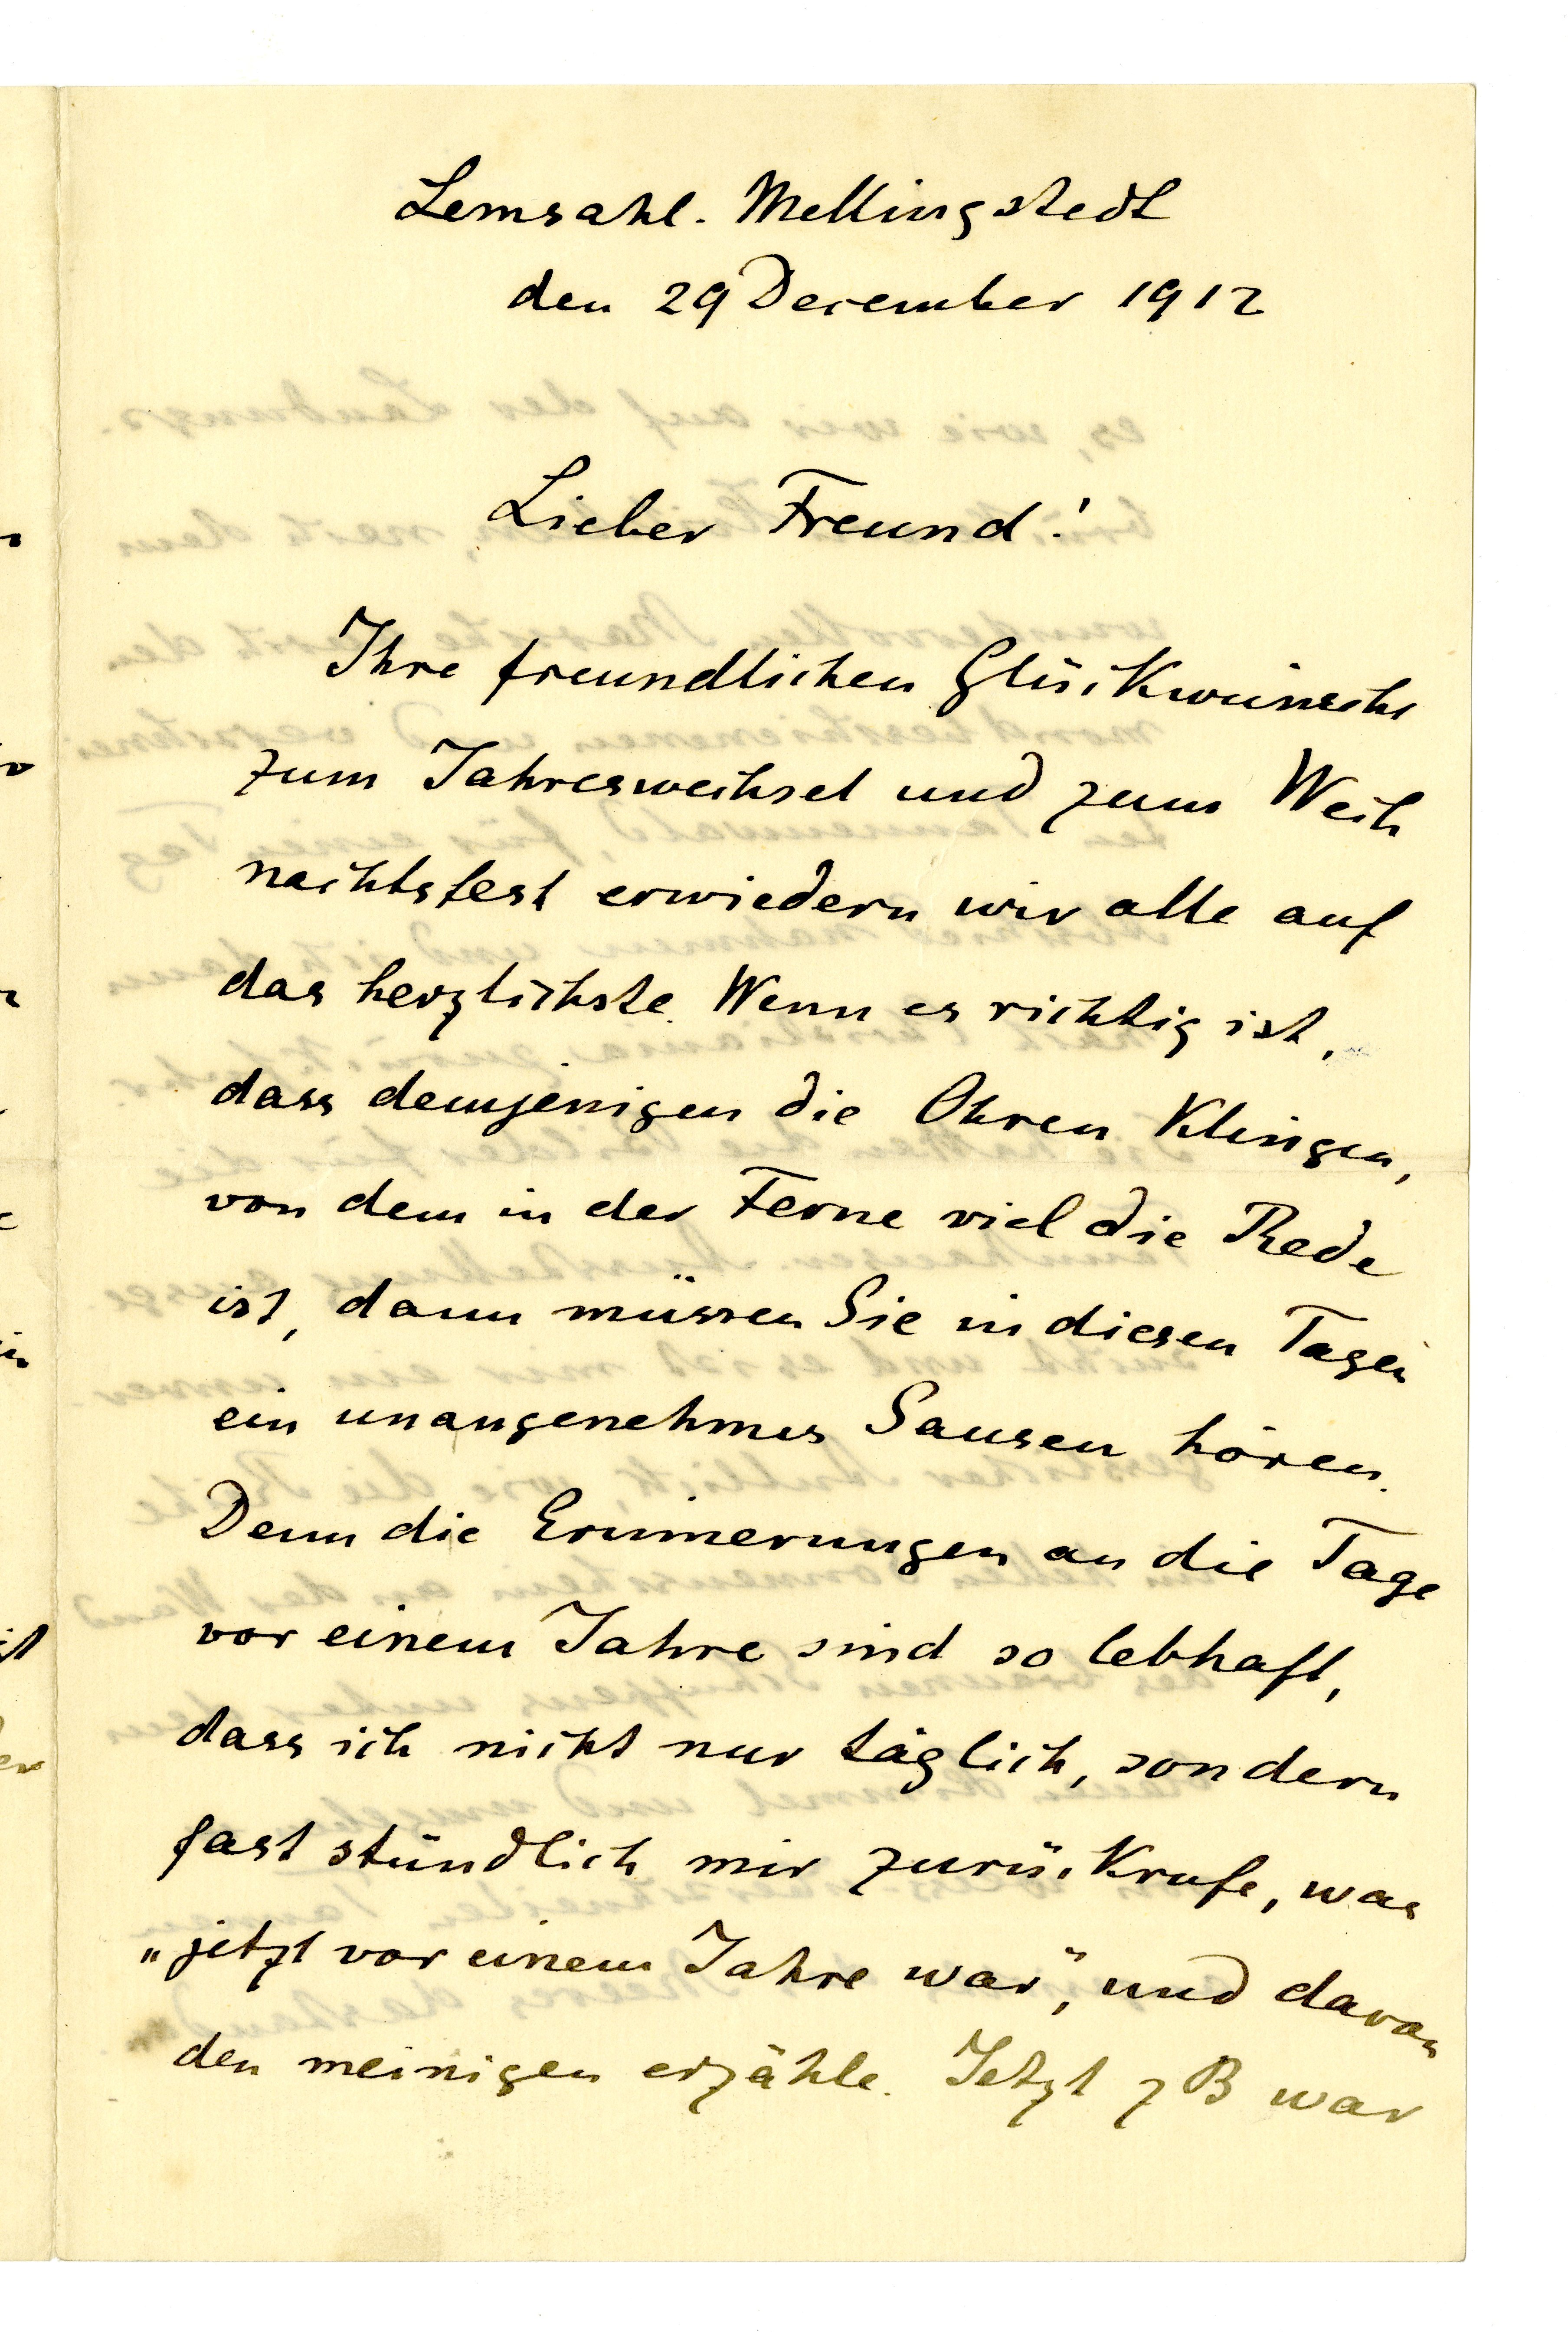 Lemsahl. Mellingstedt
den 29 December 1912
Lieber Freund!
Ihre freundlichen Glückwünsche
zum Jahreswechsel und zum Weih
nachtsfest erwiedern wir alle auf
das herzlichste. Wenn es richtig ist,
dass demjenigen die Ohren Klingen,
von dem in der Ferne viel die Rede
ist, dann müssen Sie in diesen Tagen
ein unangenehmes Sausen hören.
Denn die Erinnerungen an die Tage
vor einem Jahre sind so lebhaft,
dass ich nicht nur täglich, sondern
fast stündlich mir zurückrufe, was
"jetzt vor einem Jahre war", und davon
den meinigen erzähle. Jetzt z B war